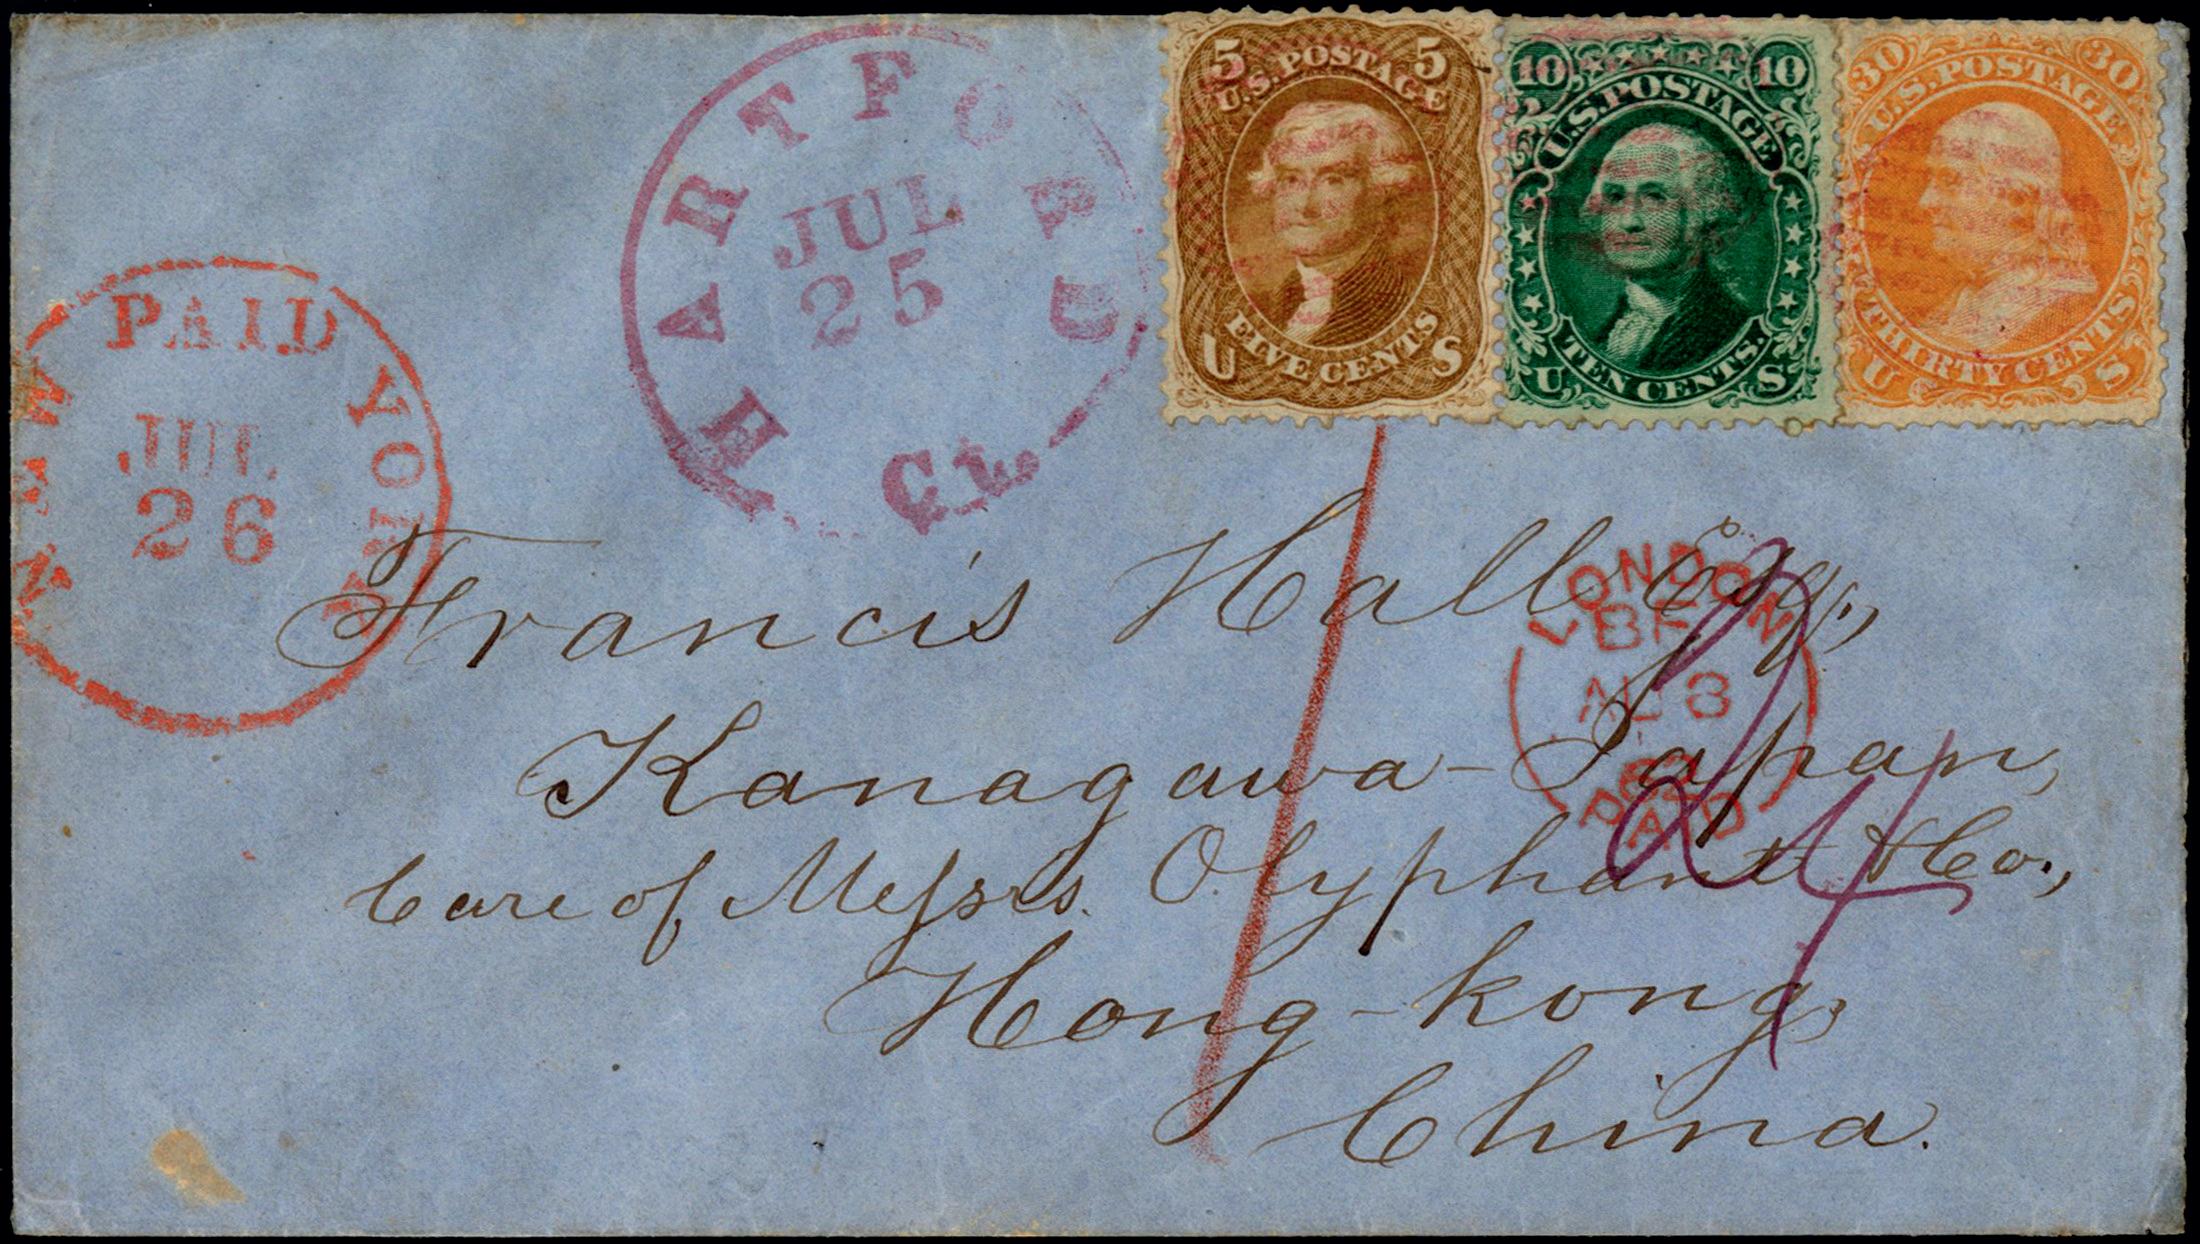 5 U.S. POSTAGE 5
FIVE CENTS
U S
10 10
U.S. POSTAGE
TEN CENTS.
U S
30 30
U.S. POSTAGE
THIRTY CENTS
U S
HARTFORD
JUL
25
CT.
NEW YORK
PAID
JUL
26
LONDON
BF
AU 8
PAID
Francis Hall Esq.,
Kanagawa - Japan,
Care of Messrs. Olyphant & Co.,
Hong-kong,
China.
24